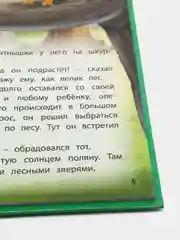 ятнышки у него на шкур-
а он подрастет! — сказал
ажу ему, как велик лес.
долго оставался со своей
и любому ребёнку, оле-
то происходит в большом
рос, он решил выбраться
по лесу. Тут он встретил
— обрадовался тот,
тую солнцем поляну. Там
и лесными зверями,
5